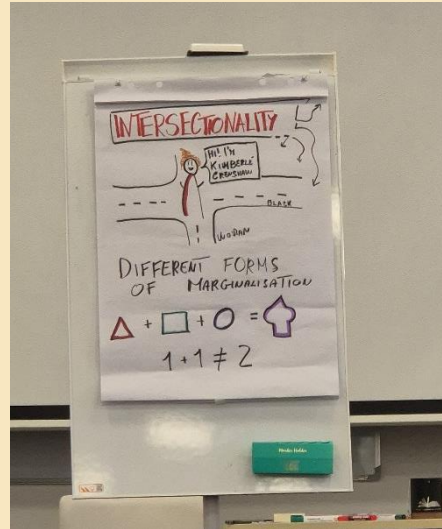 INTERSECTIONALITY
Hi! I'm
KIMBERLÉ
CRENSHAW
BLACK
WOMAN
DIFFERENT FORMS
OF MARGINALISATION
+ + =
1+1≠2